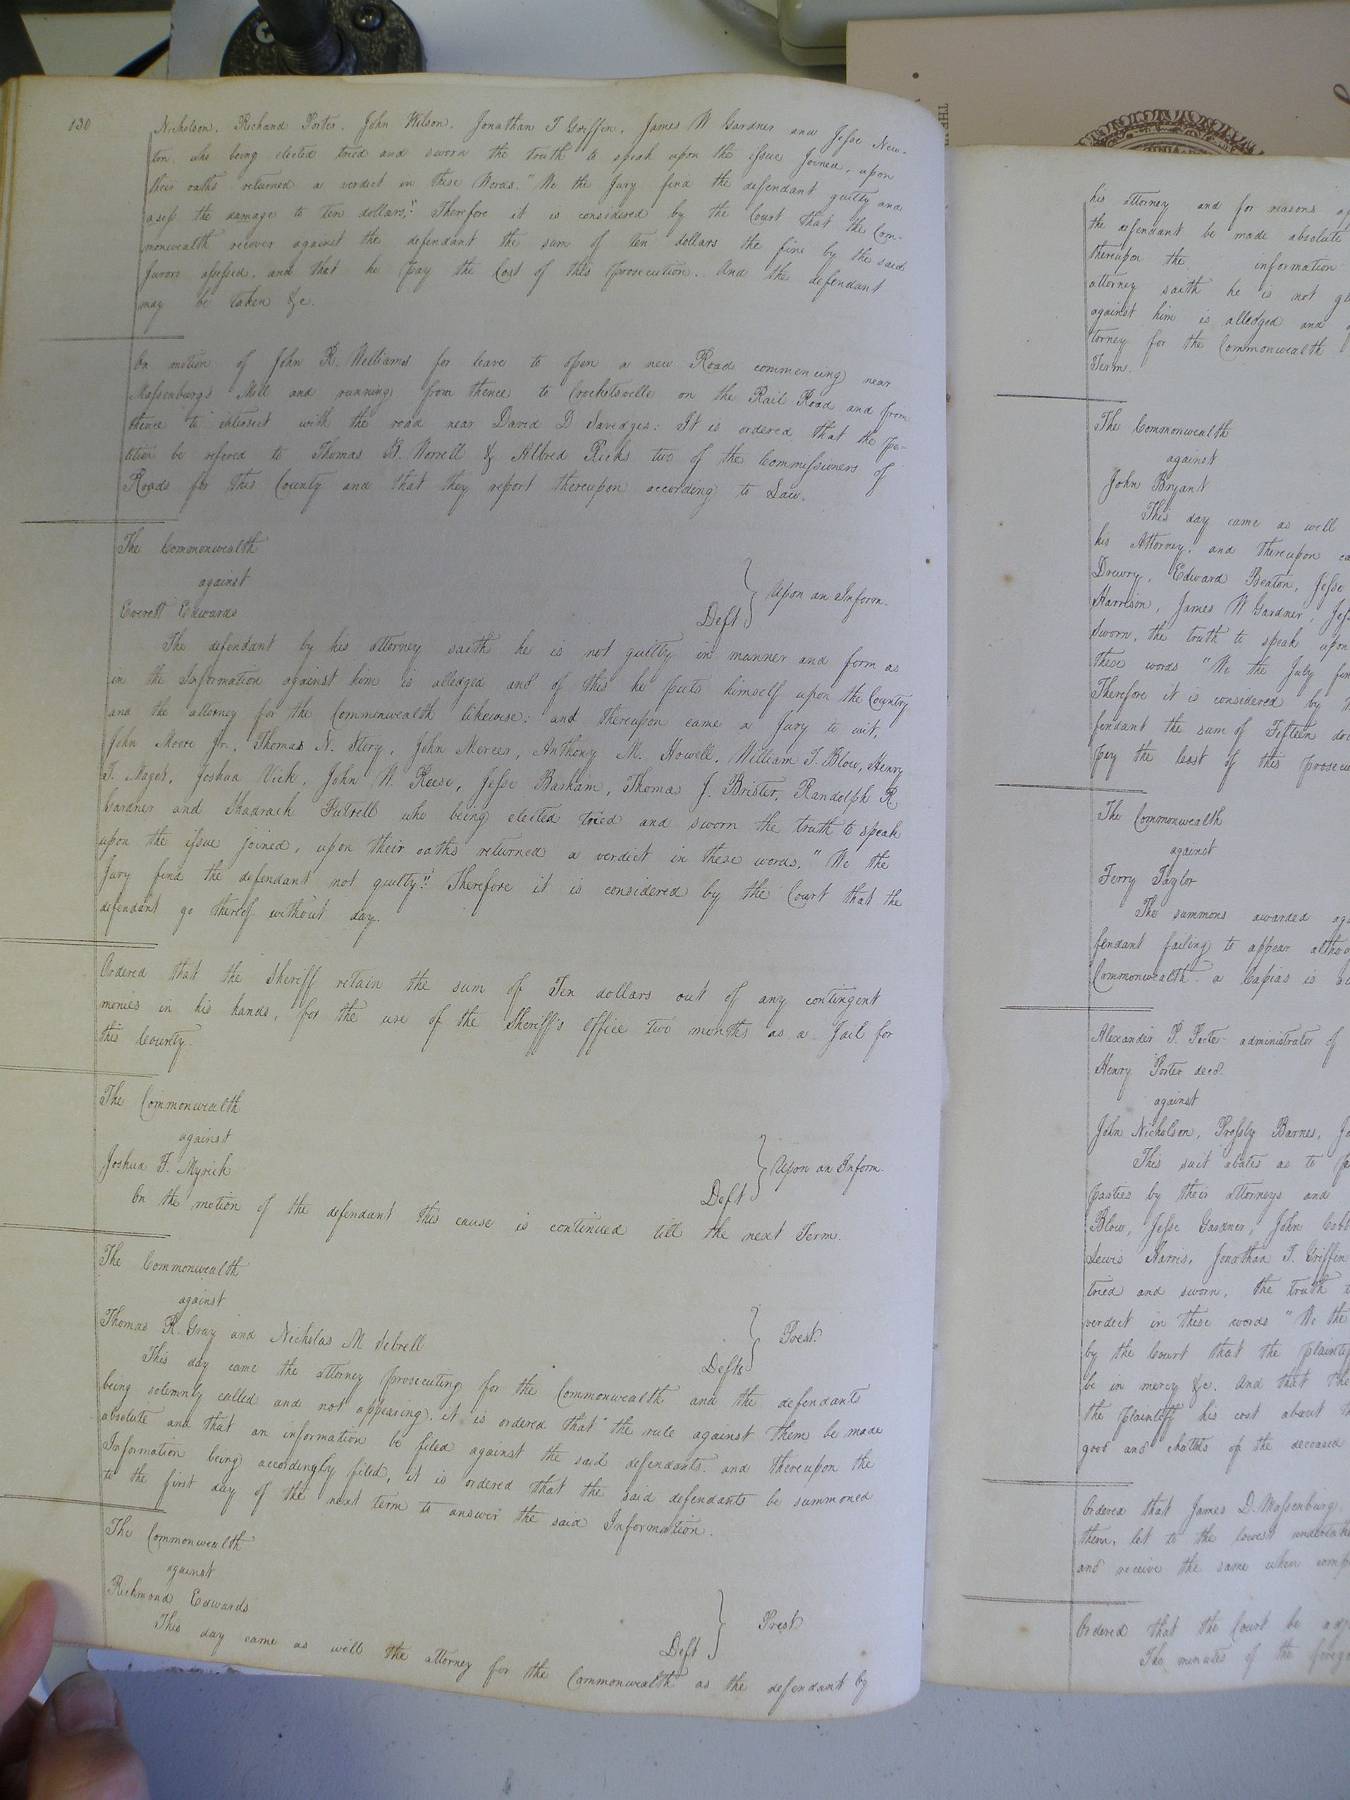 130
Nicholson, Richard Porter, John Wilson, Jonathan T Griffin, James W Gardner and Jesse New-
ton, who being elected tried and sworn the truth to speak upon the issue joined, upon
their oaths returned a verdict in these Words. "We the Jury find the defendant guilty and
asess the damage to ten dollars." Therefore it is considered by the Court that the Com-
monwealth recover against the defendant the sum of ten dollars the fine by the said
Jurors assessed, and that he pay the Cost of this prosecution. And the defendant
may be taken &c.
On motion of John R. Williams for leave to open a new Road commencing near
Massenburgs Mill and running from thence to Crocketsville on the Rail Road and from
thence to intersect with the road near David D Savedges: It is ordered that the pe-
tition be refered to Thomas B. Worrell & Albred Ricks two of the Commissioners of
Roads for this County and that they report thereupon according to Law.
The Commonwealth
against
Everett Edwards Deft } Upon an Inform.
The defendant by his attorney saith he is not guilty in manner and form as
in the Information against him is alledged and of this he puts himself upon the Country
and the attorney for the Commonwealth likewise: and thereupon came a Jury to wit,
John Moore Jr., Thomas N. Story, John Mercer, Anthony M. Howell, William T. Blow, Henry
T. Maget, Joshua Vick, John W. Reese, Jesse Barham, Thomas J. Brister, Randolph R
Gardner and Shadrach Futrell who being elected tried and sworn the truth to speak
upon the issue joined, upon their oaths returned a verdict in these words, "We the
Jury find the defendant not guilty." Therefore it is considered by the Court that the
defendant go thereof without day.
Ordered that the Sheriff retain the sum of Ten dollars out of any contingent
monies in his hands, for the use of the Sheriff's Office two months as a Jail for
this County.
The Commonwealth
against
Joshua T. Myrick Deft } Upon an Inform
On the motion of the defendant this cause is continued till the next Term.
The Commonwealth
against
Thomas R. Gray and Nicholas M Sebrell Defts } Prest.
This day came the attorney prosecuting for the Commonwealth and the defendants
being solemnly called and not appearing, it is ordered that the rule against them be made
absolute and that an information be filed against the said defendants. and thereupon the
Information being accordingly filed, it is ordered that the said defendants be summoned
to the first day of the next term to answer the said Information.
The Commonwealth
against
Richmond Edwards Deft } Prest
This day came as well the attorney for the Commonwealth as the defendant by
his attorney and for reasons
the defendant be made absolute
thereupon the information
attorney saith he is not
against him is alledged and
torney for the Commonwealth
Term.
The Commonwealth
against
John Bryant
This day came as well
his Attorney, and thereupon
Drewry, Edward Beaton, Jesse
Harrison, James W Gardner,
sworn, the truth to speak upon
these words "We the Jury
Therefore it is considered by
fendant the sum of Fifteen
pay the cost of this
The Commonwealth
against
Terry Taylor
The summons awarded
fendant failing to appear
Commonwealth a Capias is
Alexander P. Peete administrator of
Henry Porter decd.
against
John Nicholson, Pressly Barnes,
This suit abates as to
parties by their attorneys and
Blow, Jesse Gardner, John
Lewis Harris, Jonathan T. Griffin
tried and sworn, the truth
verdict in these words "We the
by the Court that the
be in mercy &c. And that the
the plaintiff his cost about
good and chattels of the deceased
Ordered that James D. Massenburg
them, let to the lowest
and receive the same when
Ordered that the Court be
The minutes of the